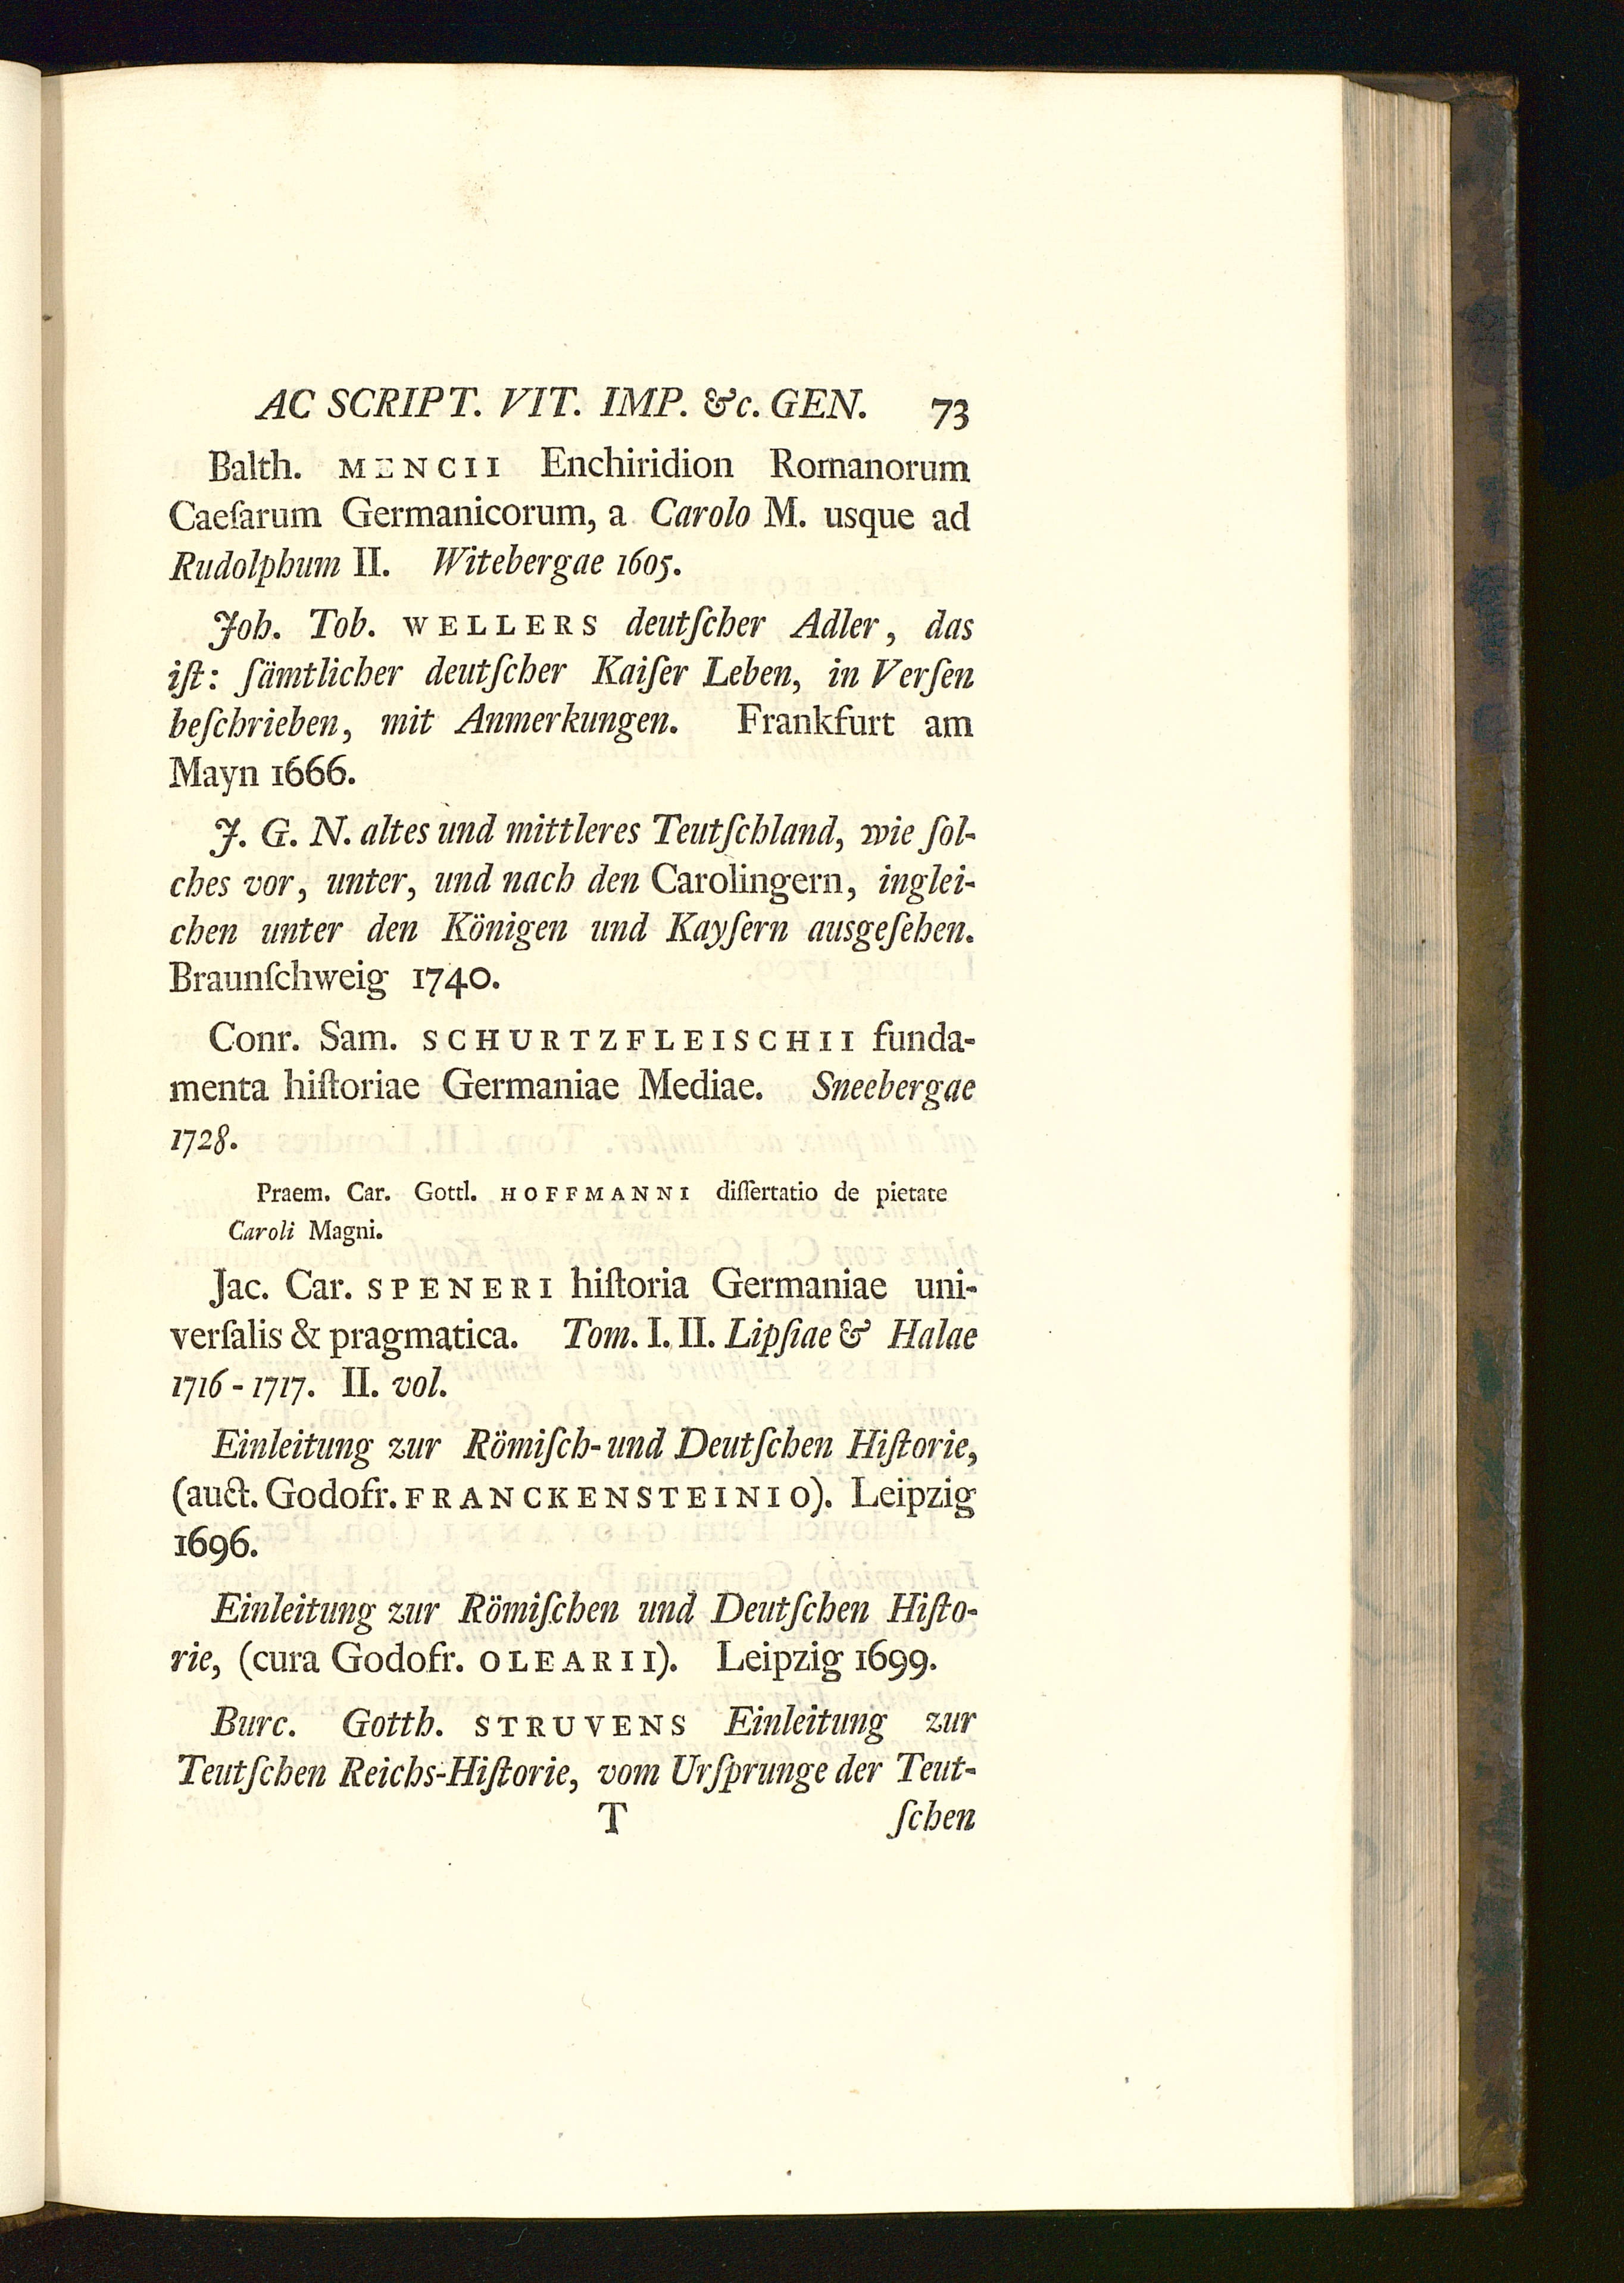 AC SCRIPT. VIT. IMP. &c. GEN. 73
Balth. MENCII Enchiridion Romanorum
Caeſarum Germanicorum, a Carolo M. usque ad
Rudolphum II. Witebergae 1605.
Joh. Tob. WELLERS deutſcher Adler, das
iſt: ſämtlicher deutſcher Kaiſer Leben, in Verſen
beſchrieben, mit Anmerkungen. Frankfurt am
Mayn 1666.
J. G. N. altes und mittleres Teutſchland, wie ſol-
ches vor, unter, und nach den Carolingern, inglei-
chen unter den Königen und Kayſern ausgeſehen.
Braunſchweig 1740.
Conr. Sam. SCHURTZFLEISCHII funda-
menta hiſtoriae Germaniae Mediae. Sneebergae
1728.
Praem. Car. Gottl. HOFFMANNI diſſertatio de pietate
Caroli Magni.
Jac. Car. SPENERI hiſtoria Germaniae uni-
verſalis & pragmatica. Tom. I. II. Lipſiae & Halae
1716 - 1717. II. vol.
Einleitung zur Römiſch- und Deutſchen Hiſtorie,
(auct. Godofr. FRANCKENSTEINIO). Leipzig
1696.
Einleitung zur Römiſchen und Deutſchen Hiſto-
rie, (cura Godofr. OLEARII). Leipzig 1699.
Burc. Gotth. STRUVENS Einleitung zur
Teutſchen Reichs-Hiſtorie, vom Urſprunge der Teut-
T ſchen